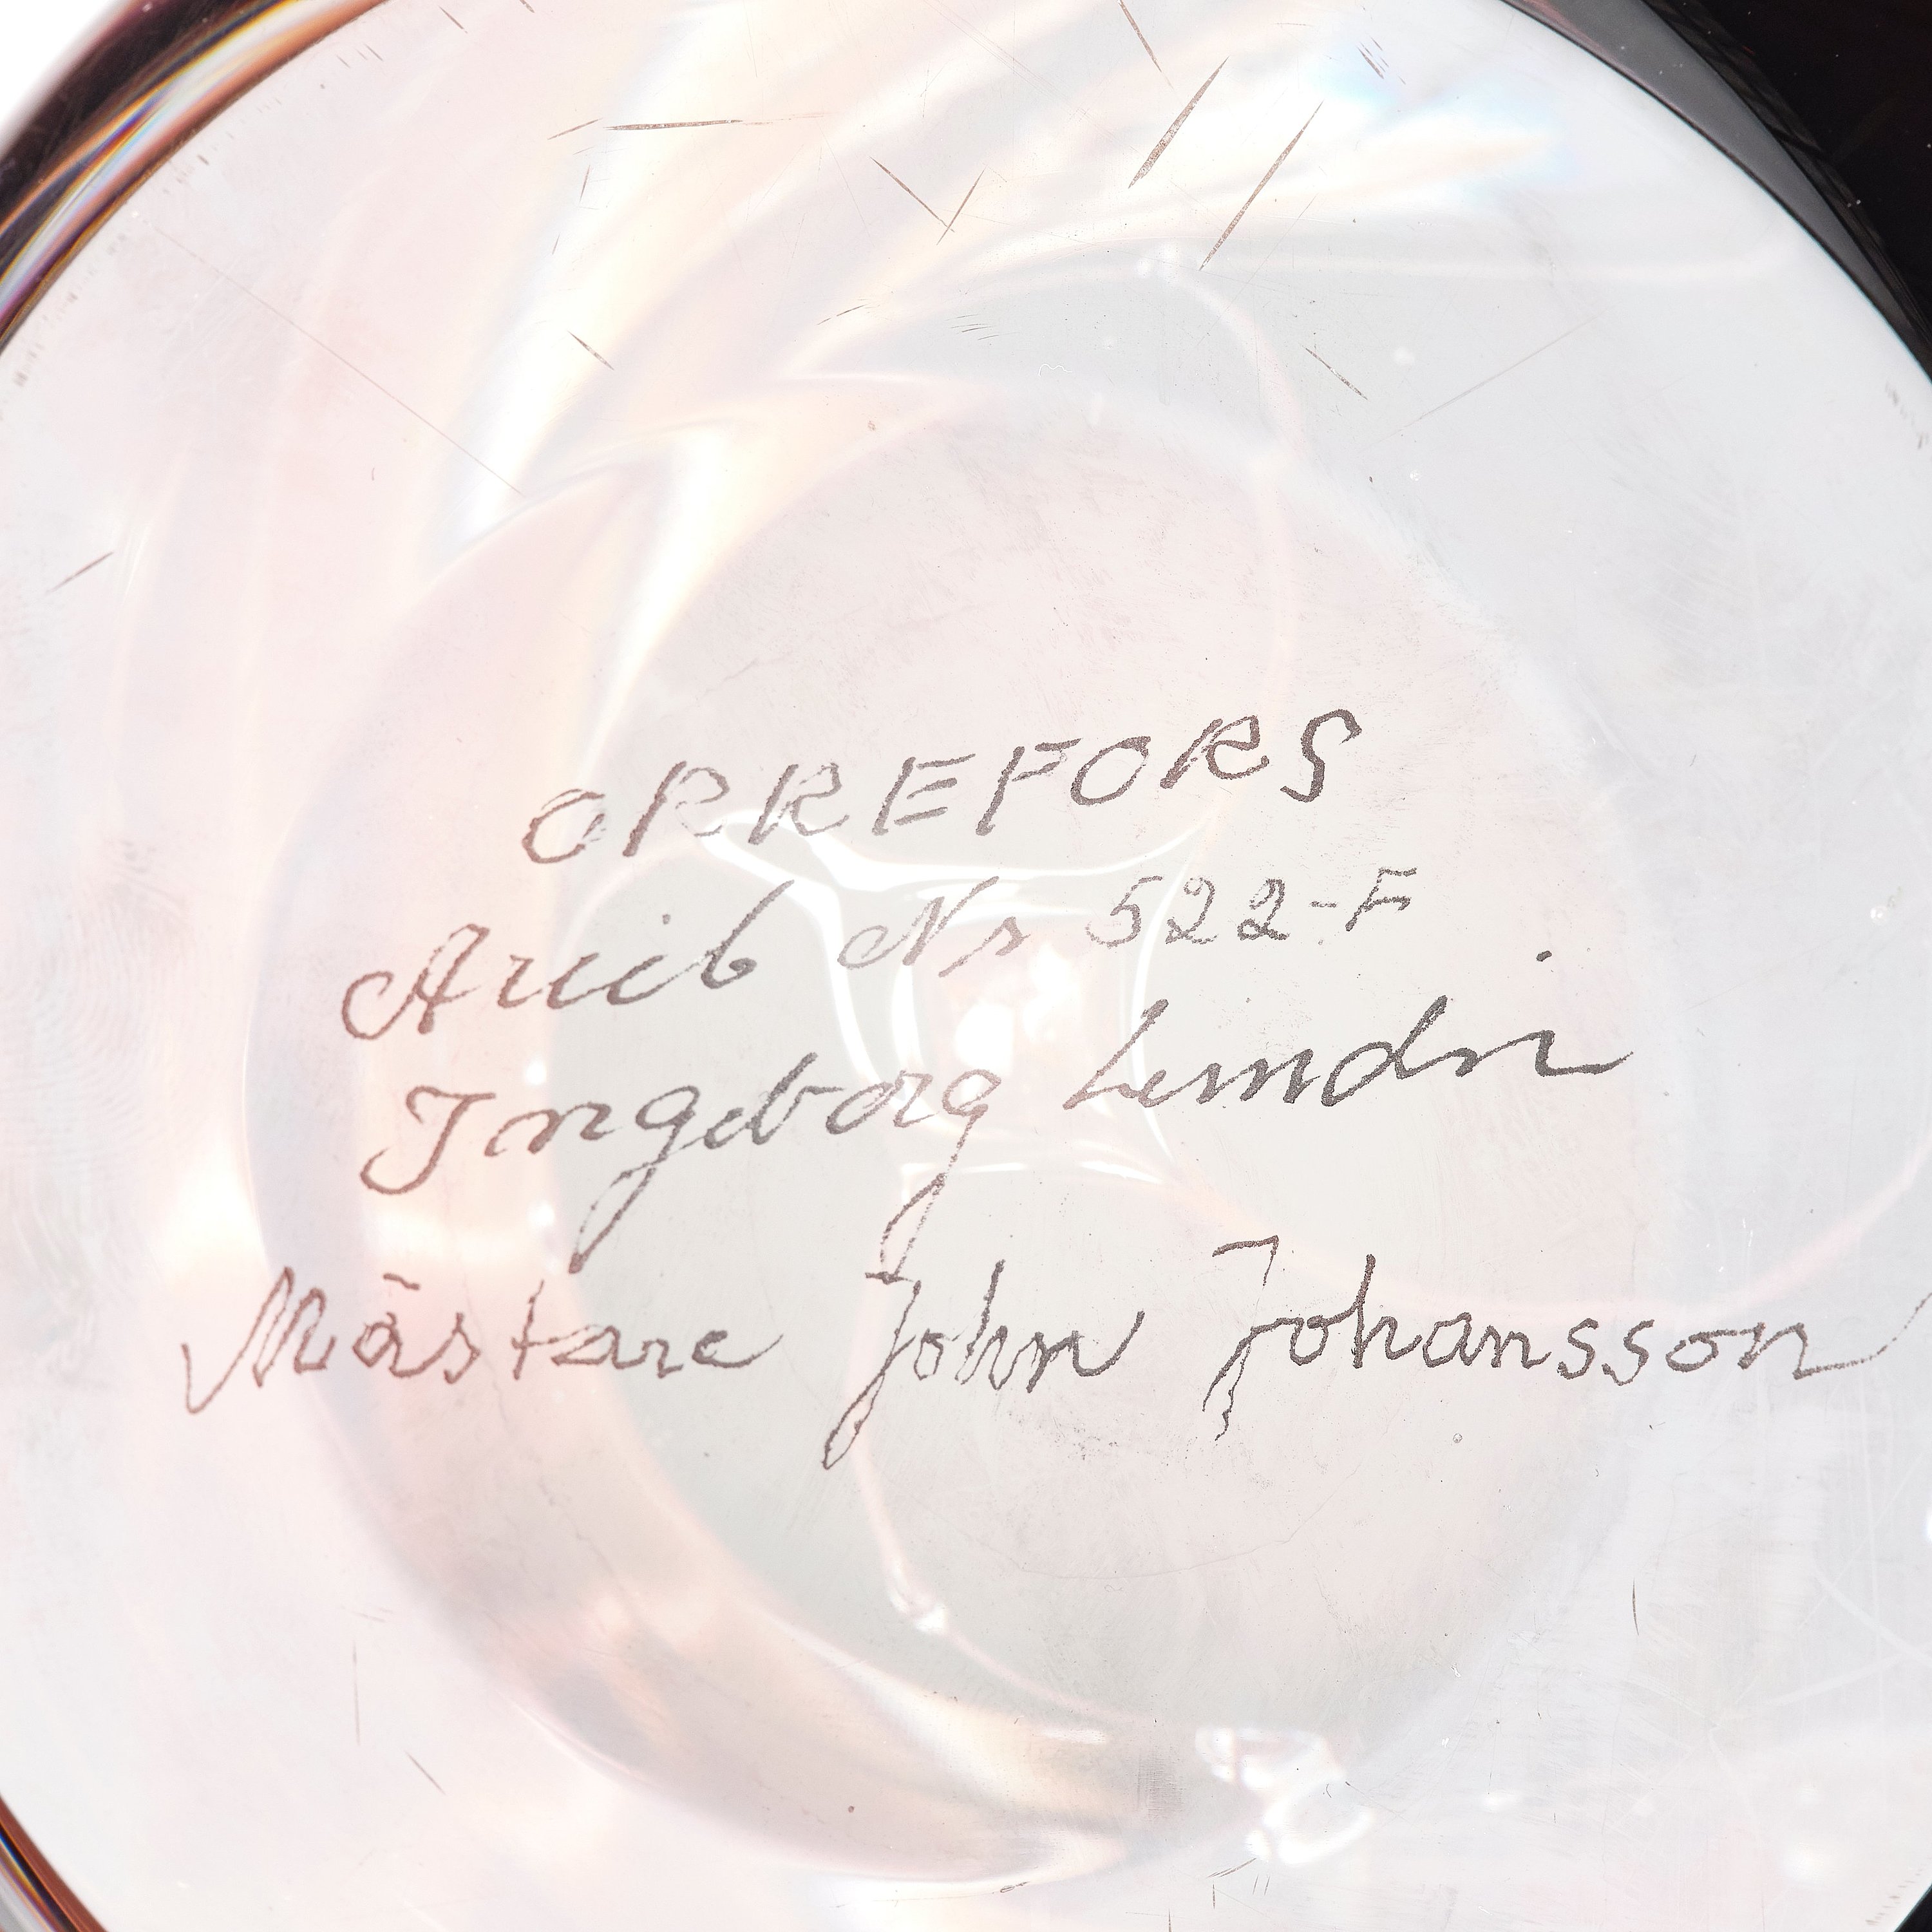 ORREFORS
Ariel Nr 522-F
Ingeborg Lundin
Mästare John Johansson